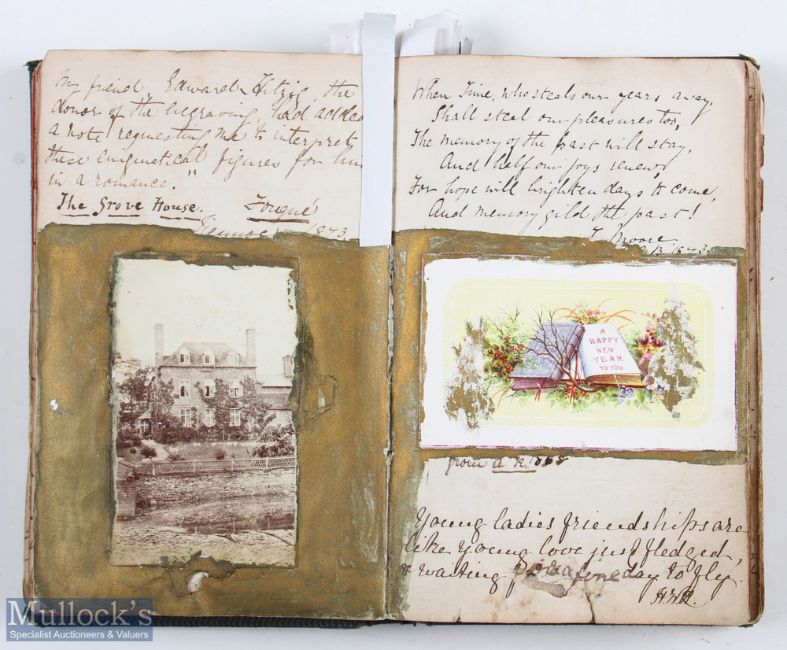 my friend, Edward Hitzig, the
donor of the engraving, had added
a note requesting me to interpret
these enigmatical figures for him
in a romance."
The Grove House. Fouqué
1843.
When Time, who steals our years away,
Shall steal our pleasures too,
The memory of the past will stay,
And half our joys renew,
For hope will brighten days to come,
And memory gild the past!
T. Moore.
1843.
A
HAPPY
NEW
YEAR
TO YOU
from
Young ladies friendships are
like young love just fledged,
& waiting for a fine day to fly.
H.W.R.
Mullock's
Specialist Auctioneers & Valuers